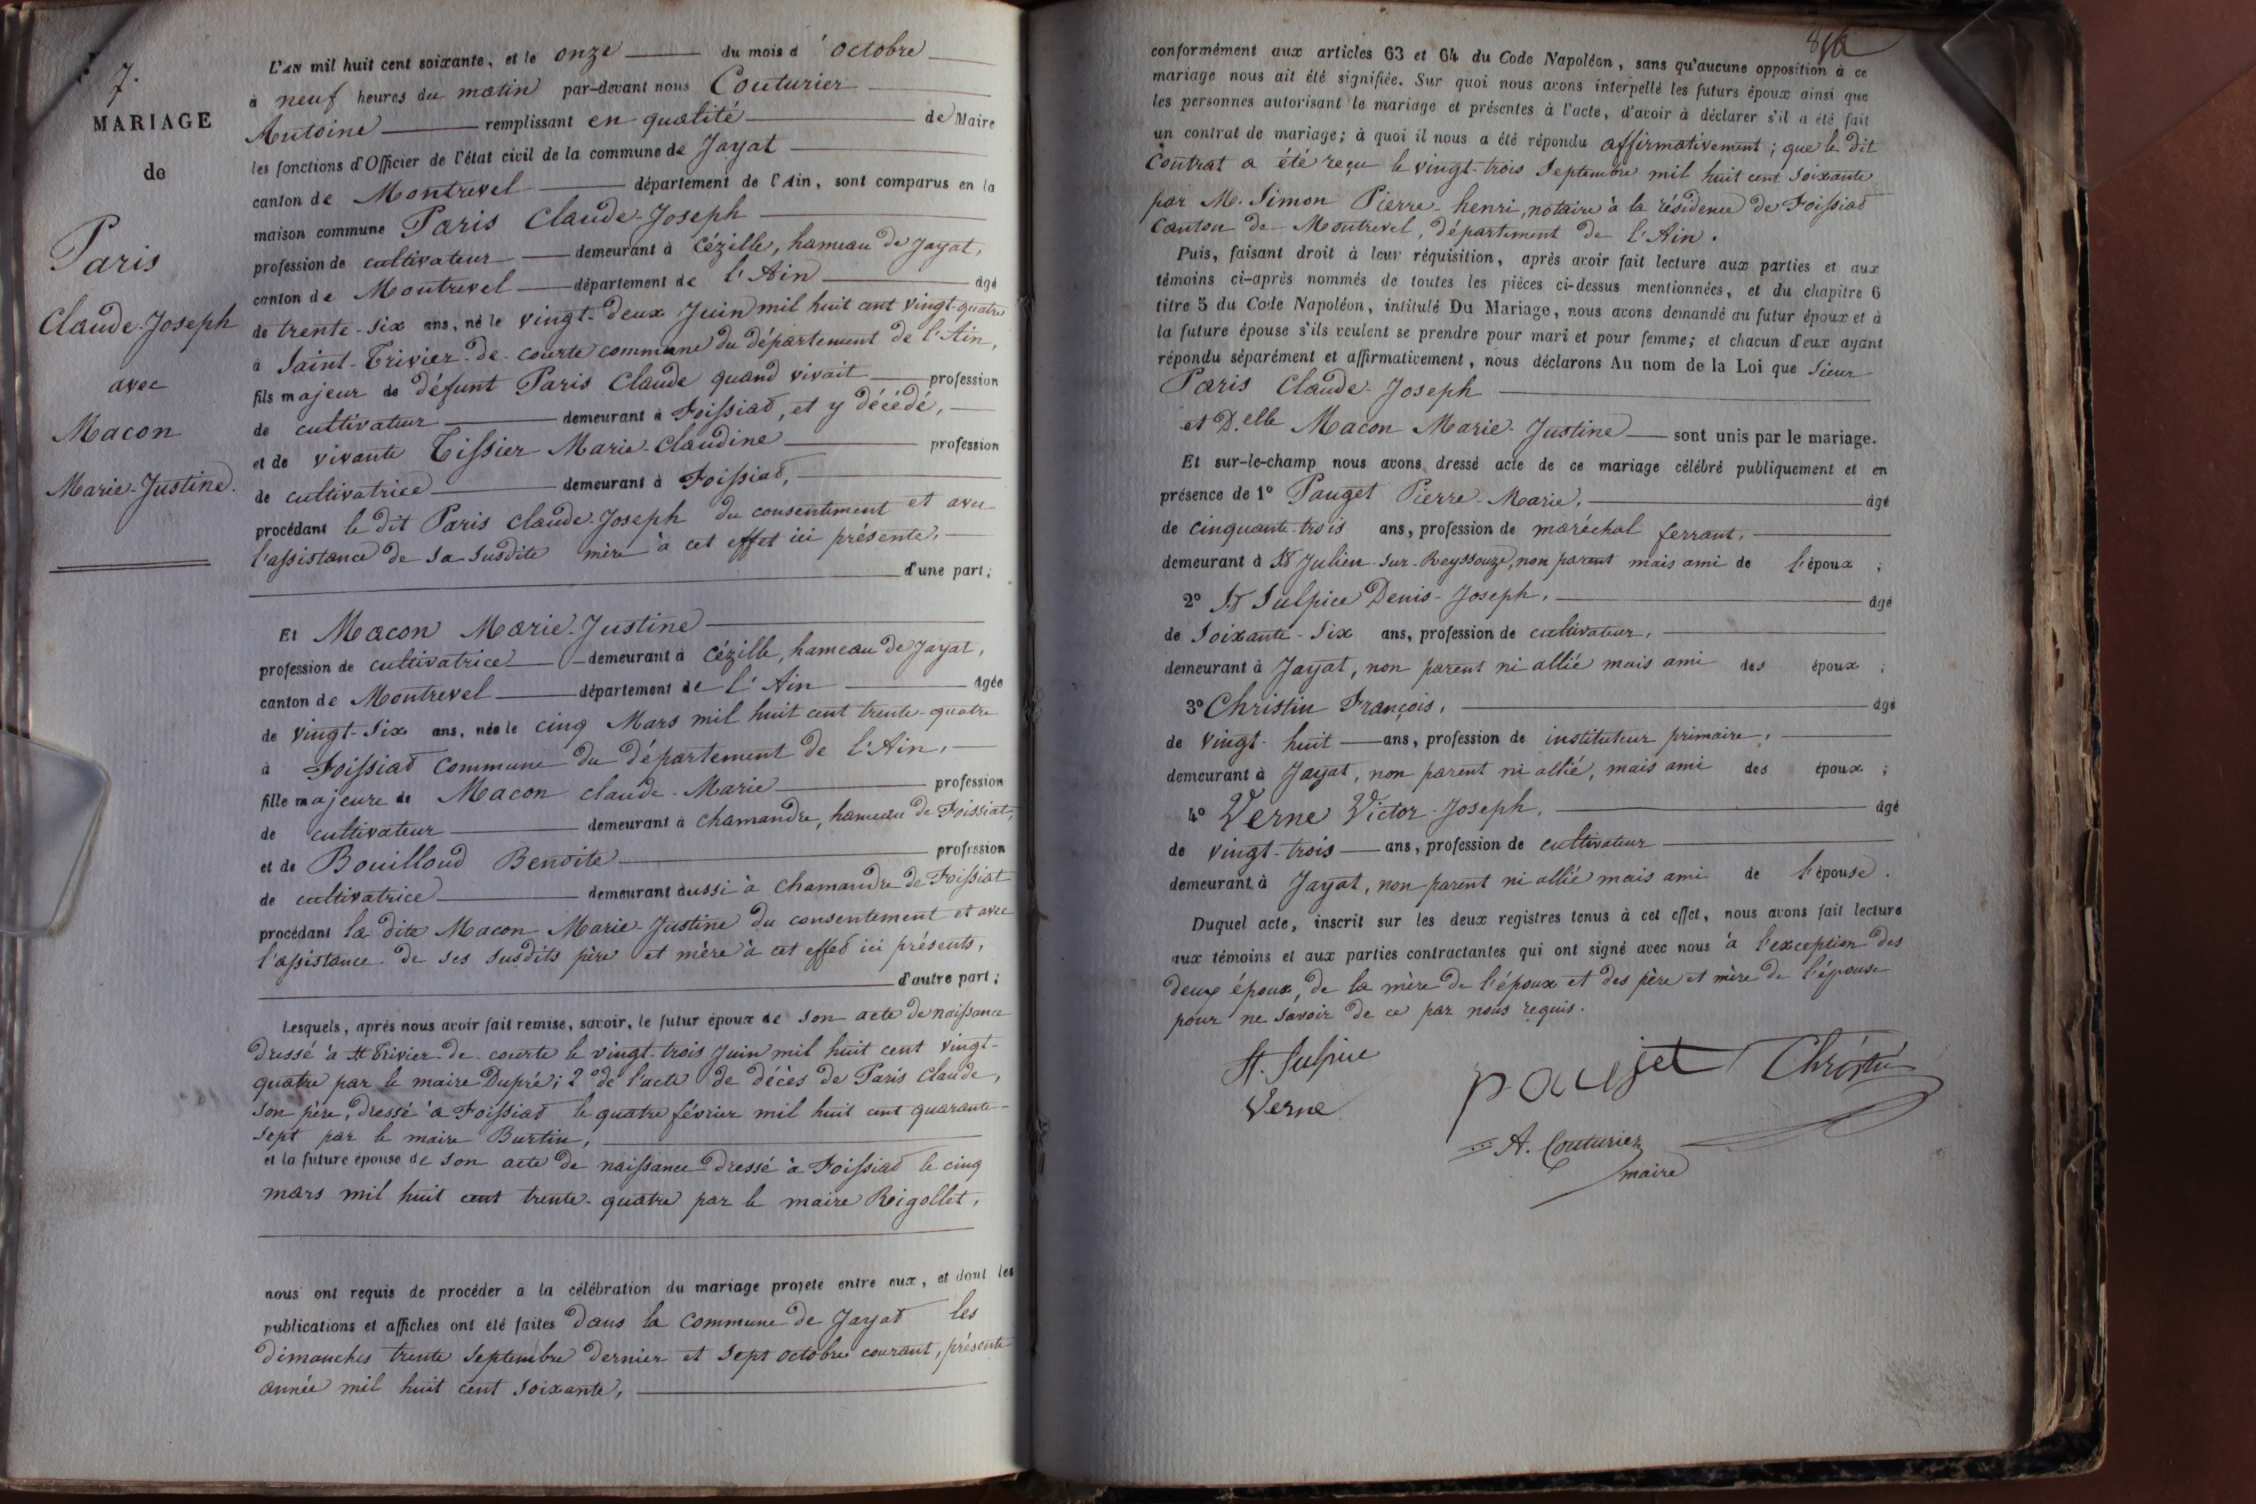 7.
MARIAGE
de
Paris
Claude-Joseph
avec
Macon
Marie-Justine.
L'AN mil huit cent soixante, et le onze du mois d'octobre
à neuf heures du matin par-devant nous Couturier
Antoine remplissant en qualité de Maire
les fonctions d'Officier de l'état civil de la commune de Jayat
canton de Montrevel département de l'Ain, sont comparus en la
maison commune Paris Claude-Joseph
profession de cultivateur demeurant à Cézille, hameau de Jayat,
canton de Montrevel département de l'Ain âgé
de trente-six ans, né le vingt-deux Juin mil huit cent vingt-quatre
à Saint-Trivier-de-courte commune du département de l'Ain,
fils majeur de défunt Paris Claude quand vivait profession
de cultivateur demeurant à Foissiat, et y décédé,
et de vivante Tissier Marie-Claudine profession
de cultivatrice demeurant à Foissiat,
procédant le dit Paris Claude-Joseph du consentement et avec
l'assistance de sa susdite mère à cet effet ici présente,
d'une part;
Et Macon Marie-Justine
profession de cultivatrice demeurant à Cézille, hameau de Jayat,
canton de Montrevel département de l'Ain âgée
de vingt-six ans, née le cinq Mars mil huit cent trente-quatre
à Foissiat commune du département de l'Ain,
fille majeure de Macon Claude-Marie profession
de cultivateur demeurant à Chamandre, hameau de Foissiat,
et de Bouilloud Benoite profession
de cultivatrice demeurant aussi à Chamandre de Foissiat
procédant la dite Macon Marie-Justine du consentement et avec
l'assistance de ses susdits père et mère à cet effet ici présents,
d'autre part;
Lesquels, après nous avoir fait remise, savoir, le futur époux de son acte de naissance
dressé à St Trivier-de-courte le vingt-trois Juin mil huit cent vingt-
quatre par le maire Dupré; 2° de l'acte de décès de Paris Claude,
son père, dressé à Foissiat le quatre février mil huit cent quarante-
sept par le maire Burtin,
et la future épouse de son acte de naissance dressé à Foissiat le cinq
mars mil huit cent trente-quatre par le maire Roigollet,
nous ont requis de procéder à la célébration du mariage projeté entre eux, et dont les
publications et affiches ont été faites dans la Commune de Jayat les
dimanches trente Septembre dernier et sept octobre courant, présente
année mil huit cent soixante,
conformément aux articles 63 et 64 du Code Napoléon, sans qu'aucune opposition à ce
mariage nous ait été signifiée. Sur quoi nous avons interpellé les futurs époux ainsi que
les personnes autorisant le mariage et présentes à l'acte, d'avoir à déclarer s'il a été fait
un contrat de mariage; à quoi il nous a été répondu affirmativement; que le dit
Contrat a été reçu le vingt-trois Septembre mil huit cent soixante
par M. Simon Pierre-henri, notaire à la résidence de Foissiat
Canton de Montrevel, département de l'Ain.
Puis, faisant droit à leur réquisition, après avoir fait lecture aux parties et aux
témoins ci-après nommés de toutes les pièces ci-dessus mentionnées, et du chapitre 6
titre 5 du Code Napoléon, intitulé Du Mariage, nous avons demandé au futur époux et à
la future épouse s'ils veulent se prendre pour mari et pour femme; et chacun d'eux ayant
répondu séparément et affirmativement, nous déclarons Au nom de la Loi que Sieur
Paris Claude-Joseph
et D.elle Macon Marie-Justine sont unis par le mariage.
Et sur-le-champ nous avons dressé acte de ce mariage célébré publiquement et en
présence de 1° Pauget Pierre-Marie, âgé
de cinquante-trois ans, profession de maréchal ferrant,
demeurant à St Julien-sur-Reyssouze, non parent mais ami de l'époux ;
2° St Sulpice Denis-Joseph, âgé
de soixante-six ans, profession de cultivateur,
demeurant à Jayat, non parent ni allié mais ami des époux ;
3° Christin François, âgé
de vingt-huit ans, profession de instituteur primaire,
demeurant à Jayat, non parent ni allié, mais ami des époux ;
4° Verne Victor-Joseph, âgé
de vingt-trois ans, profession de cultivateur
demeurant à Jayat, non parent ni allié mais ami de l'épouse.
Duquel acte, inscrit sur les deux registres tenus à cet effet, nous avons fait lecture
aux témoins et aux parties contractantes qui ont signé avec nous à l'exception des
deux époux, de la mère de l'époux et des père et mère de l'épouse
pour ne savoir de ce par nous requis.
St. Sulpice
paujet
Christin
Verne
A. Couturier
maire